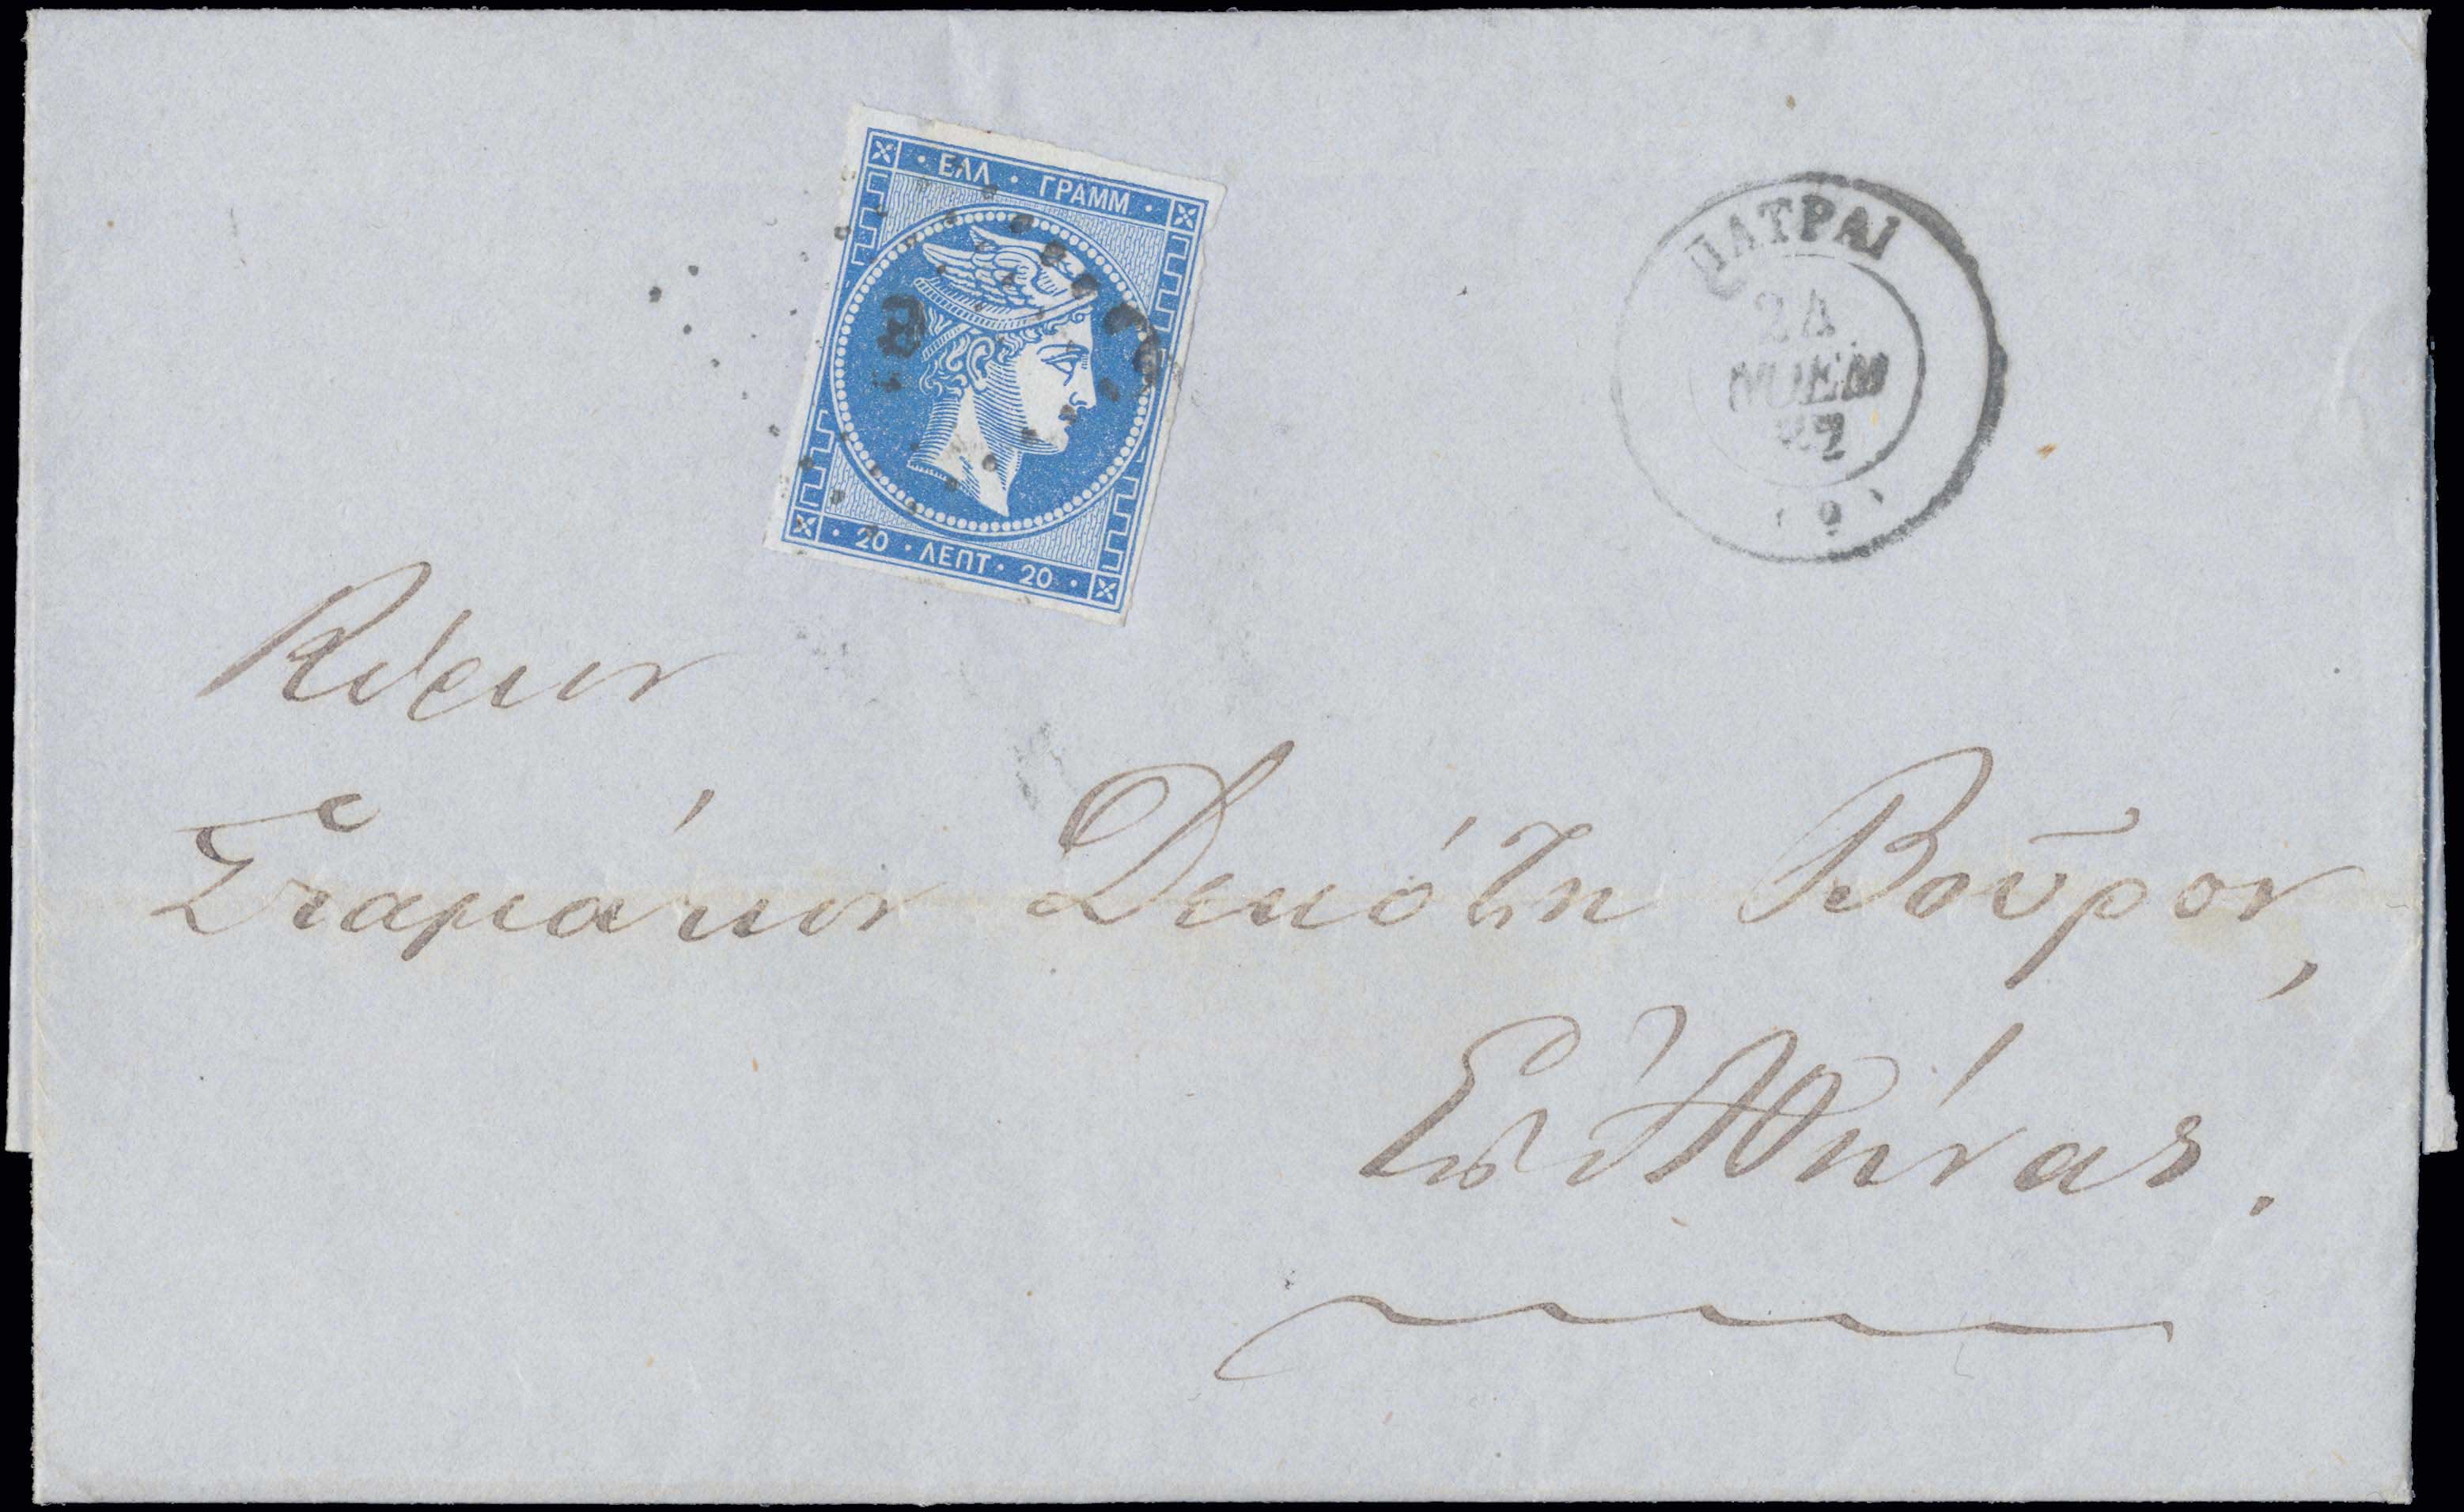 ΕΛΛ · ΓΡΑΜΜ ·
20 · ΛΕΠΤ · 20 ·
ΠΑΤΡΑΙ
ΝΟΕΜ
9
Κύριον
Σταμάτιον Δεκόζη Βοῦρον,
Εἰς Ἀθήνας.